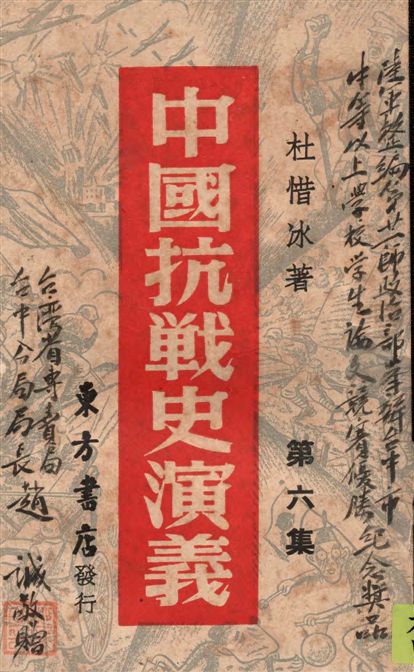 陸軍整編第廿一師政治部舉辦台中市
中等以上學校学生論文競賽優勝紀念獎品
杜惜冰著
第六集
中國抗戰史演義
東方書店發行
台灣省專賣局
台中分局局長趙
誠敬贈